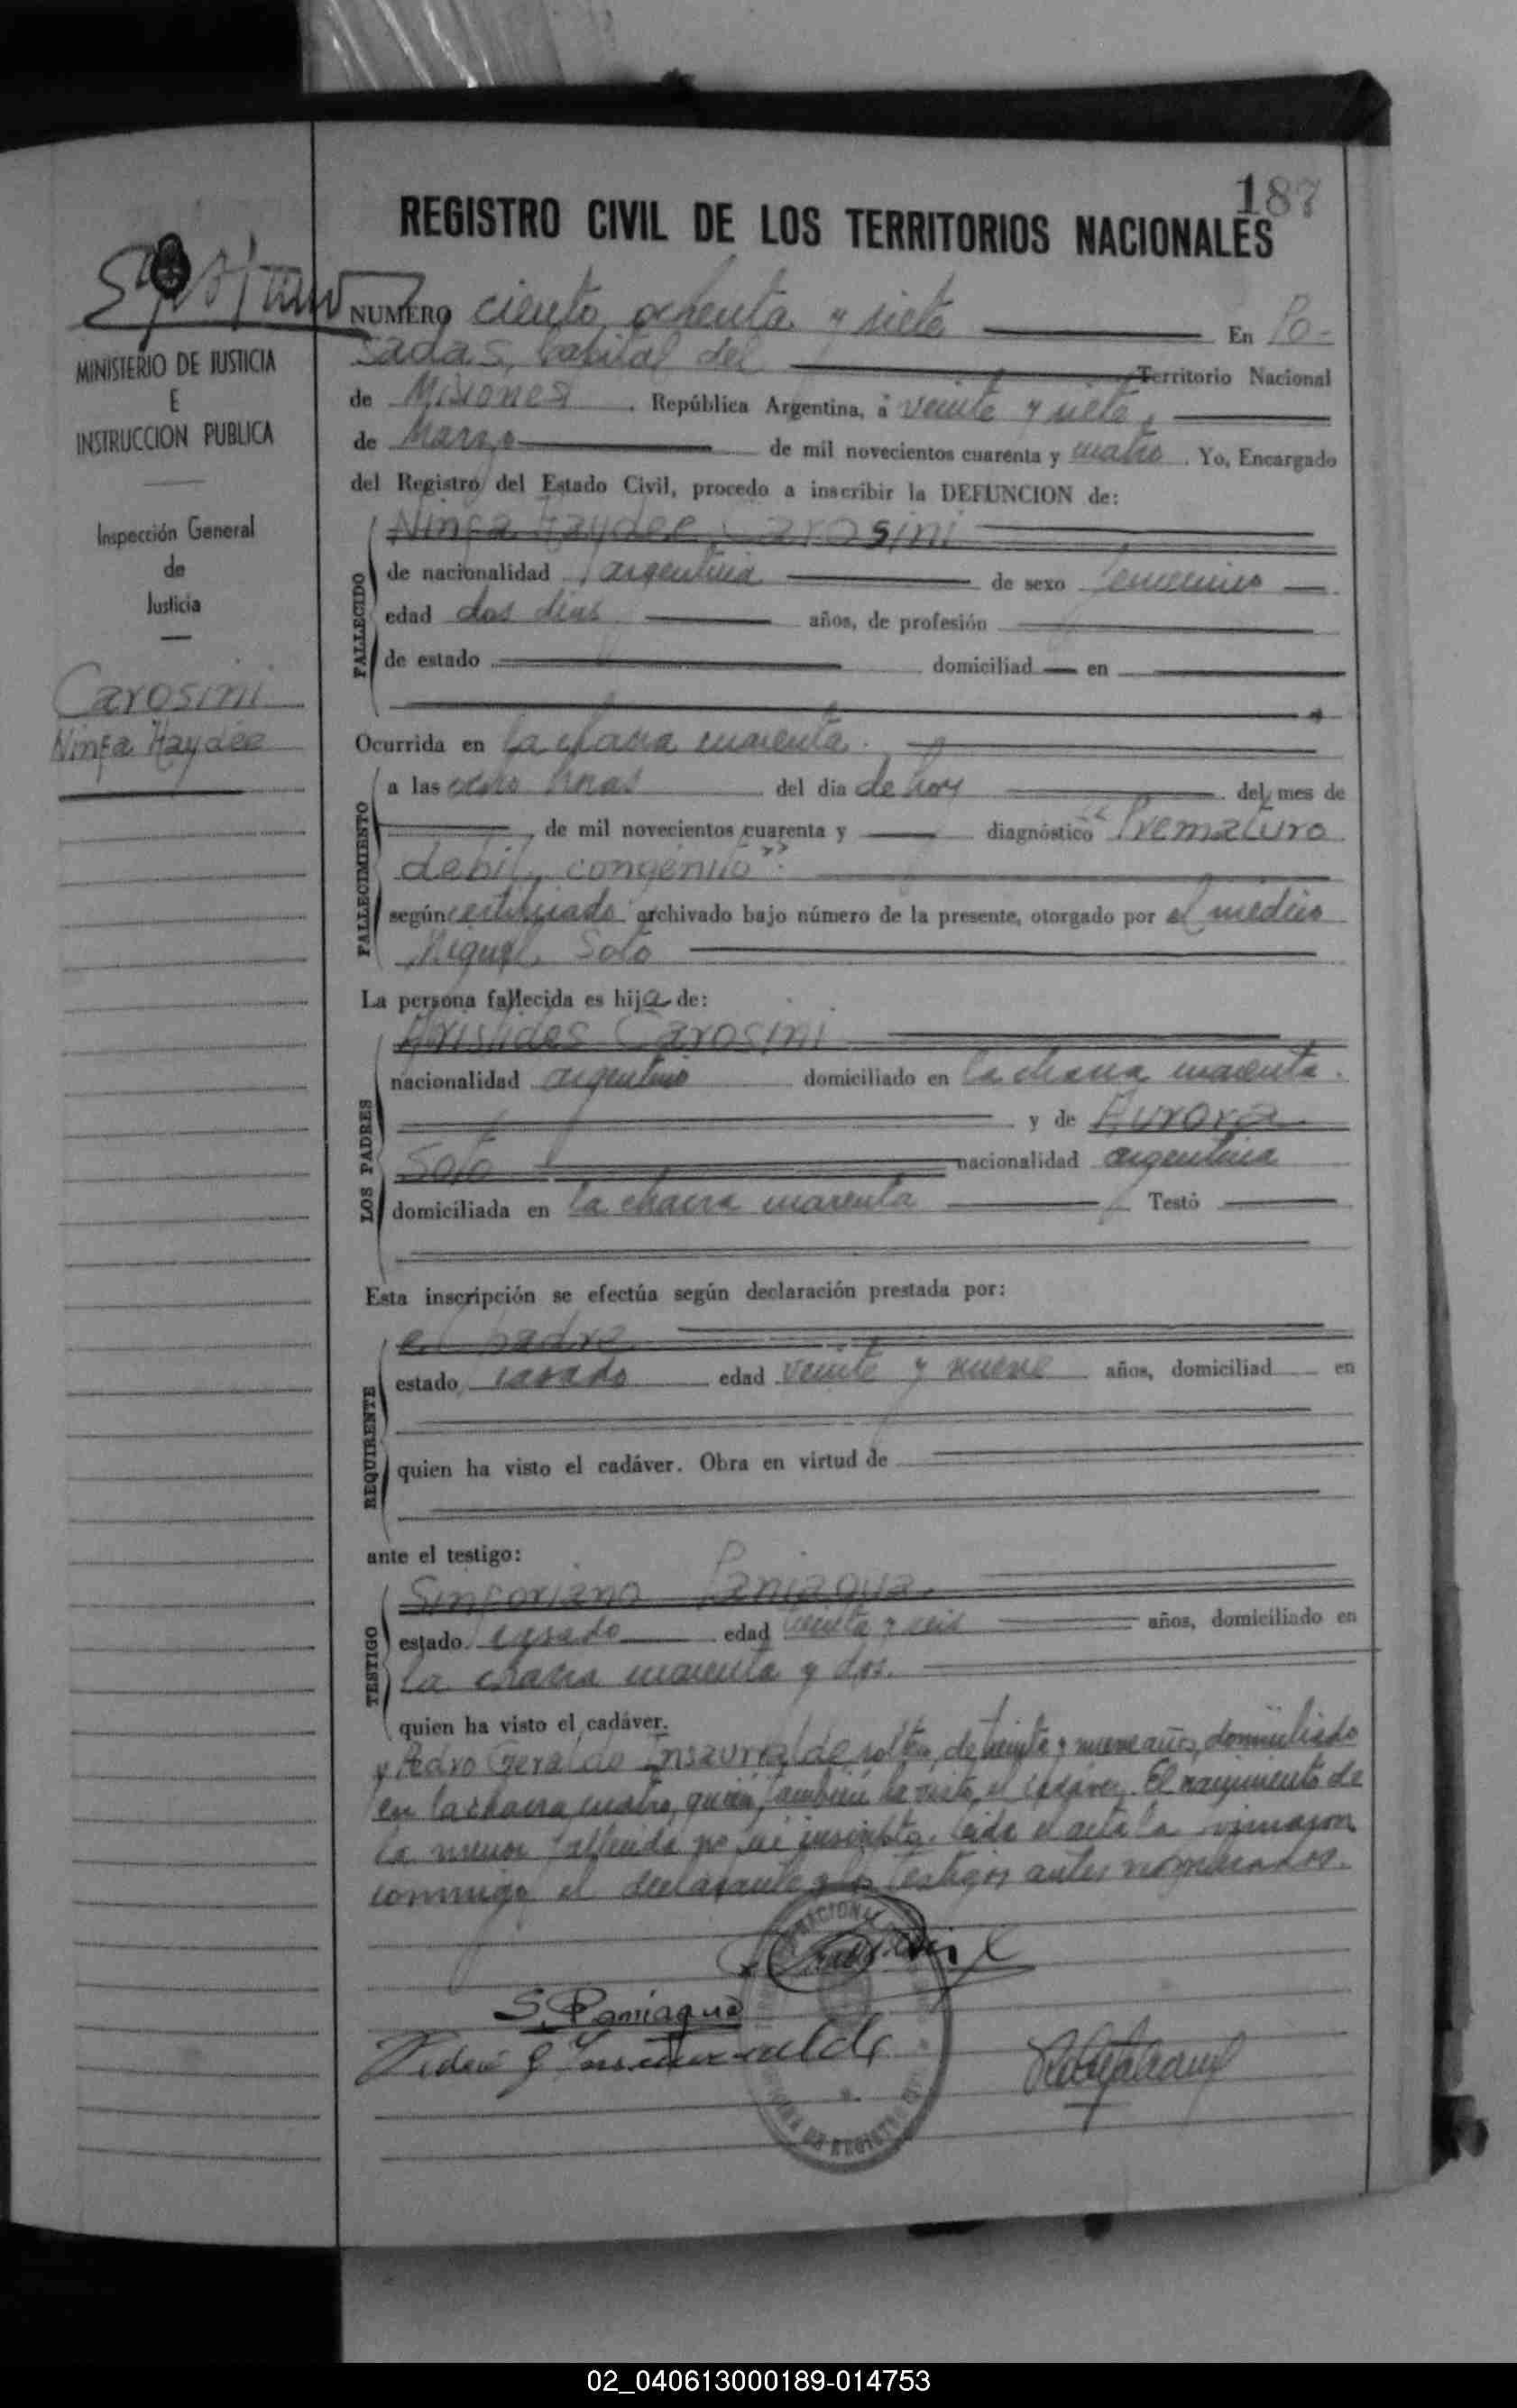 187
REGISTRO CIVIL DE LOS TERRITORIOS NACIONALES
MINISTERIO DE JUSTICIA
E
INSTRUCCION PUBLICA
Inspección General
de
Justicia
Carosini
Ninfa Haydée
NUMERO ciento ochenta y siete En Po-
sadas, Capital del Territorio Nacional
de Misiones, República Argentina, a veinte y siete,
de Marzo de mil novecientos cuarenta y cuatro. Yo, Encargado
del Registro del Estado Civil, procedo a inscribir la DEFUNCION de:
FALLECIDO
Ninfa Haydee Carosini
de nacionalidad argentina de sexo femenino
edad dos días años, de profesión
de estado domiciliad en
Ocurrida en la chacra cuarenta.
FALLECIMIENTO
a las ocho horas del dia de hoy del mes de
de mil novecientos cuarenta y diagnóstico "Prematuro
debil congénito".
según certificado archivado bajo número de la presente, otorgado por el médico
Miguel Soto
La persona fallecida es hija de:
LOS PADRES
Aristides Carosini
nacionalidad argentino domiciliado en la chacra cuarenta.
y de Aurora
Soto nacionalidad argentina
domiciliada en la chacra cuarenta Testó
Esta inscripción se efectúa según declaración prestada por:
REQUIRENTE
el padre
estado casado edad veinte y nueve años, domiciliad en
quien ha visto el cadáver. Obra en virtud de
ante el testigo:
TESTIGO
Sinforiano Paniagua.
estado casado edad treinta y seis años, domiciliado en
la chacra cuarenta y dos.
quien ha visto el cadáver.
y Pedro Geraldo Insaurralde, soltero, de treinta y nueve años, domiciliado
en la chacra cuatro, quien también ha visto el cadáver. El nacimiento de
la menor fallecida no fué inscripto. Leida el acta la firmaron
conmigo el declarante y los testigos antes nombrados.
S. Paniagua
Pedro G Insaurralde
02_040613000189-014753